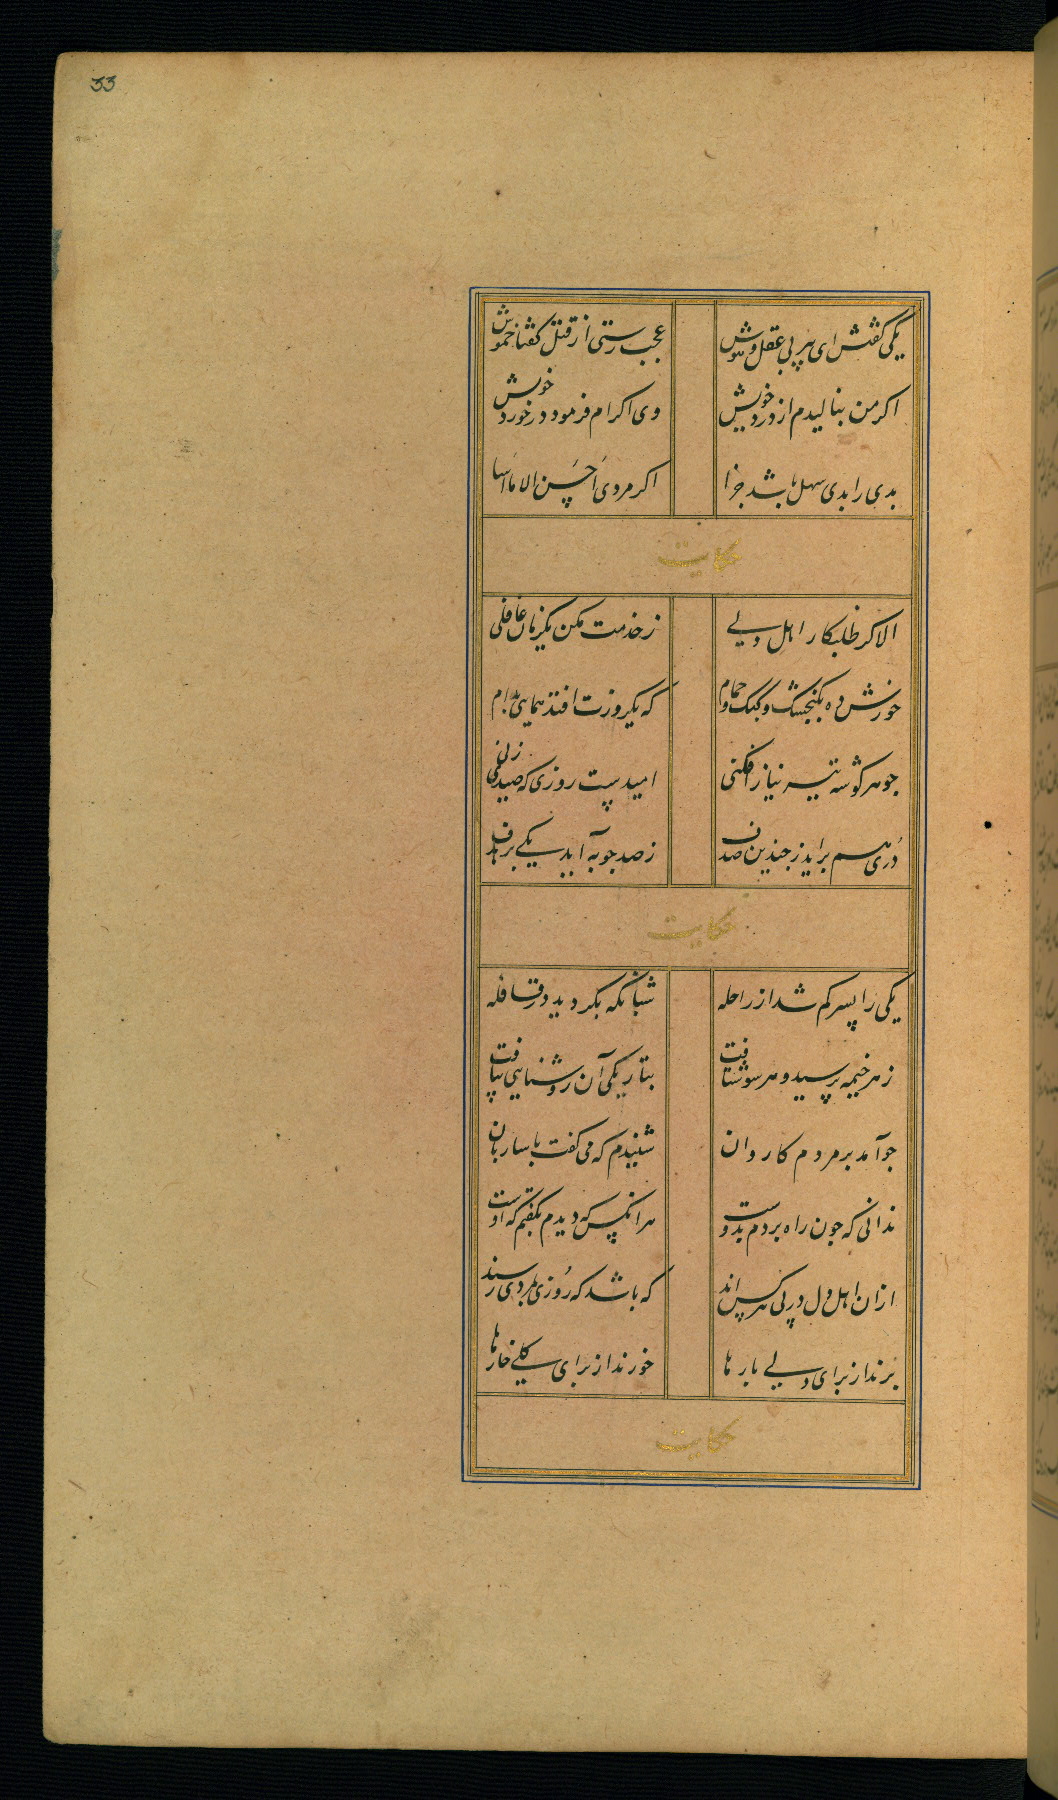 33
یکی گفتش ای پیر بی عقل و هوش عجب رستی از قتل گفتا خموش
اکر من بنالیدم از درد خویش وی اکرام فرمود در خورد خویش
بدی را بدی سهل باشد جزا اکر مردی اَحْسِن الی من اسا
حکایت
الا کر طلبکار اهل دلی ز خدمت مکن یکزمان غافلی
خورش ده بکنجشک و کبک و حمام که یکروزت افتد همایی بدام
جو هر کوشه تیر نیاز افکنی امیدست روزی که صیدی زنی
دُری هم براید ز جندین صدف ز صد جوبه آید یکی بر هدف
حکایت
یکی را پسر کم شد از راحله شبانکه بکردید در قافله
ز هر خیمه پرسید و هر سو شتافت بتاریکی آن روشنایی بیافت
جو آمد بر مردم کاروان شنیدم که می کفت با ساربان
ندانی که جون راه بردم بدوست هر آنکس که دیدم بکفتم که اوست
ازان اهل دل در پی هر کس اند که باشد که رُوزی بمردی رسند
برند از برای دلی بارها خورند از برای کلی خارها
حکایت